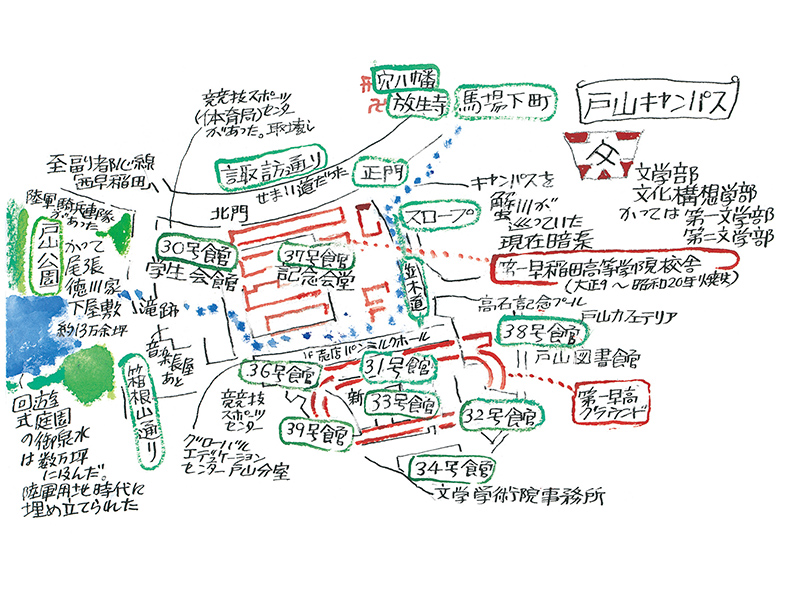 戸山キャンパス
文
文学部
文化構想学部
かつては 第一文学部
第二文学部
穴八幡
放生寺
馬場下町
競技スポーツ
(体育局)センター
があった。取壊し
諏訪通り
せまい道だった
正門
至副都心線
西早稲田
陸軍騎兵連隊
があった
北門
スロープ
キャンパスを
蟹川が
巡っていた
現在暗渠
戸山公園
かつて
尾張
徳川家
下屋敷
約13万余坪
滝跡
30号館
学生会館
37号館
記念会堂
並木道
第一早稲田高等学院校舎
(大正9～昭和20年焼失)
高石記念プール
戸山カフェテリア
38号館
戸山図書館
音楽長屋
あと
箱根山通り
旧売店パンミルクホール
36号館
31号館
競技
スポーツ
センター
新
33号館
39号館
32号館
第一早高
グラウンド
グローバル
エデュケーション
センター戸山分室
34号館
文学学術院事務所
回遊
式庭園
の御泉水
は数万坪
に及んだ。
陸軍用地時代に
埋め立てられた